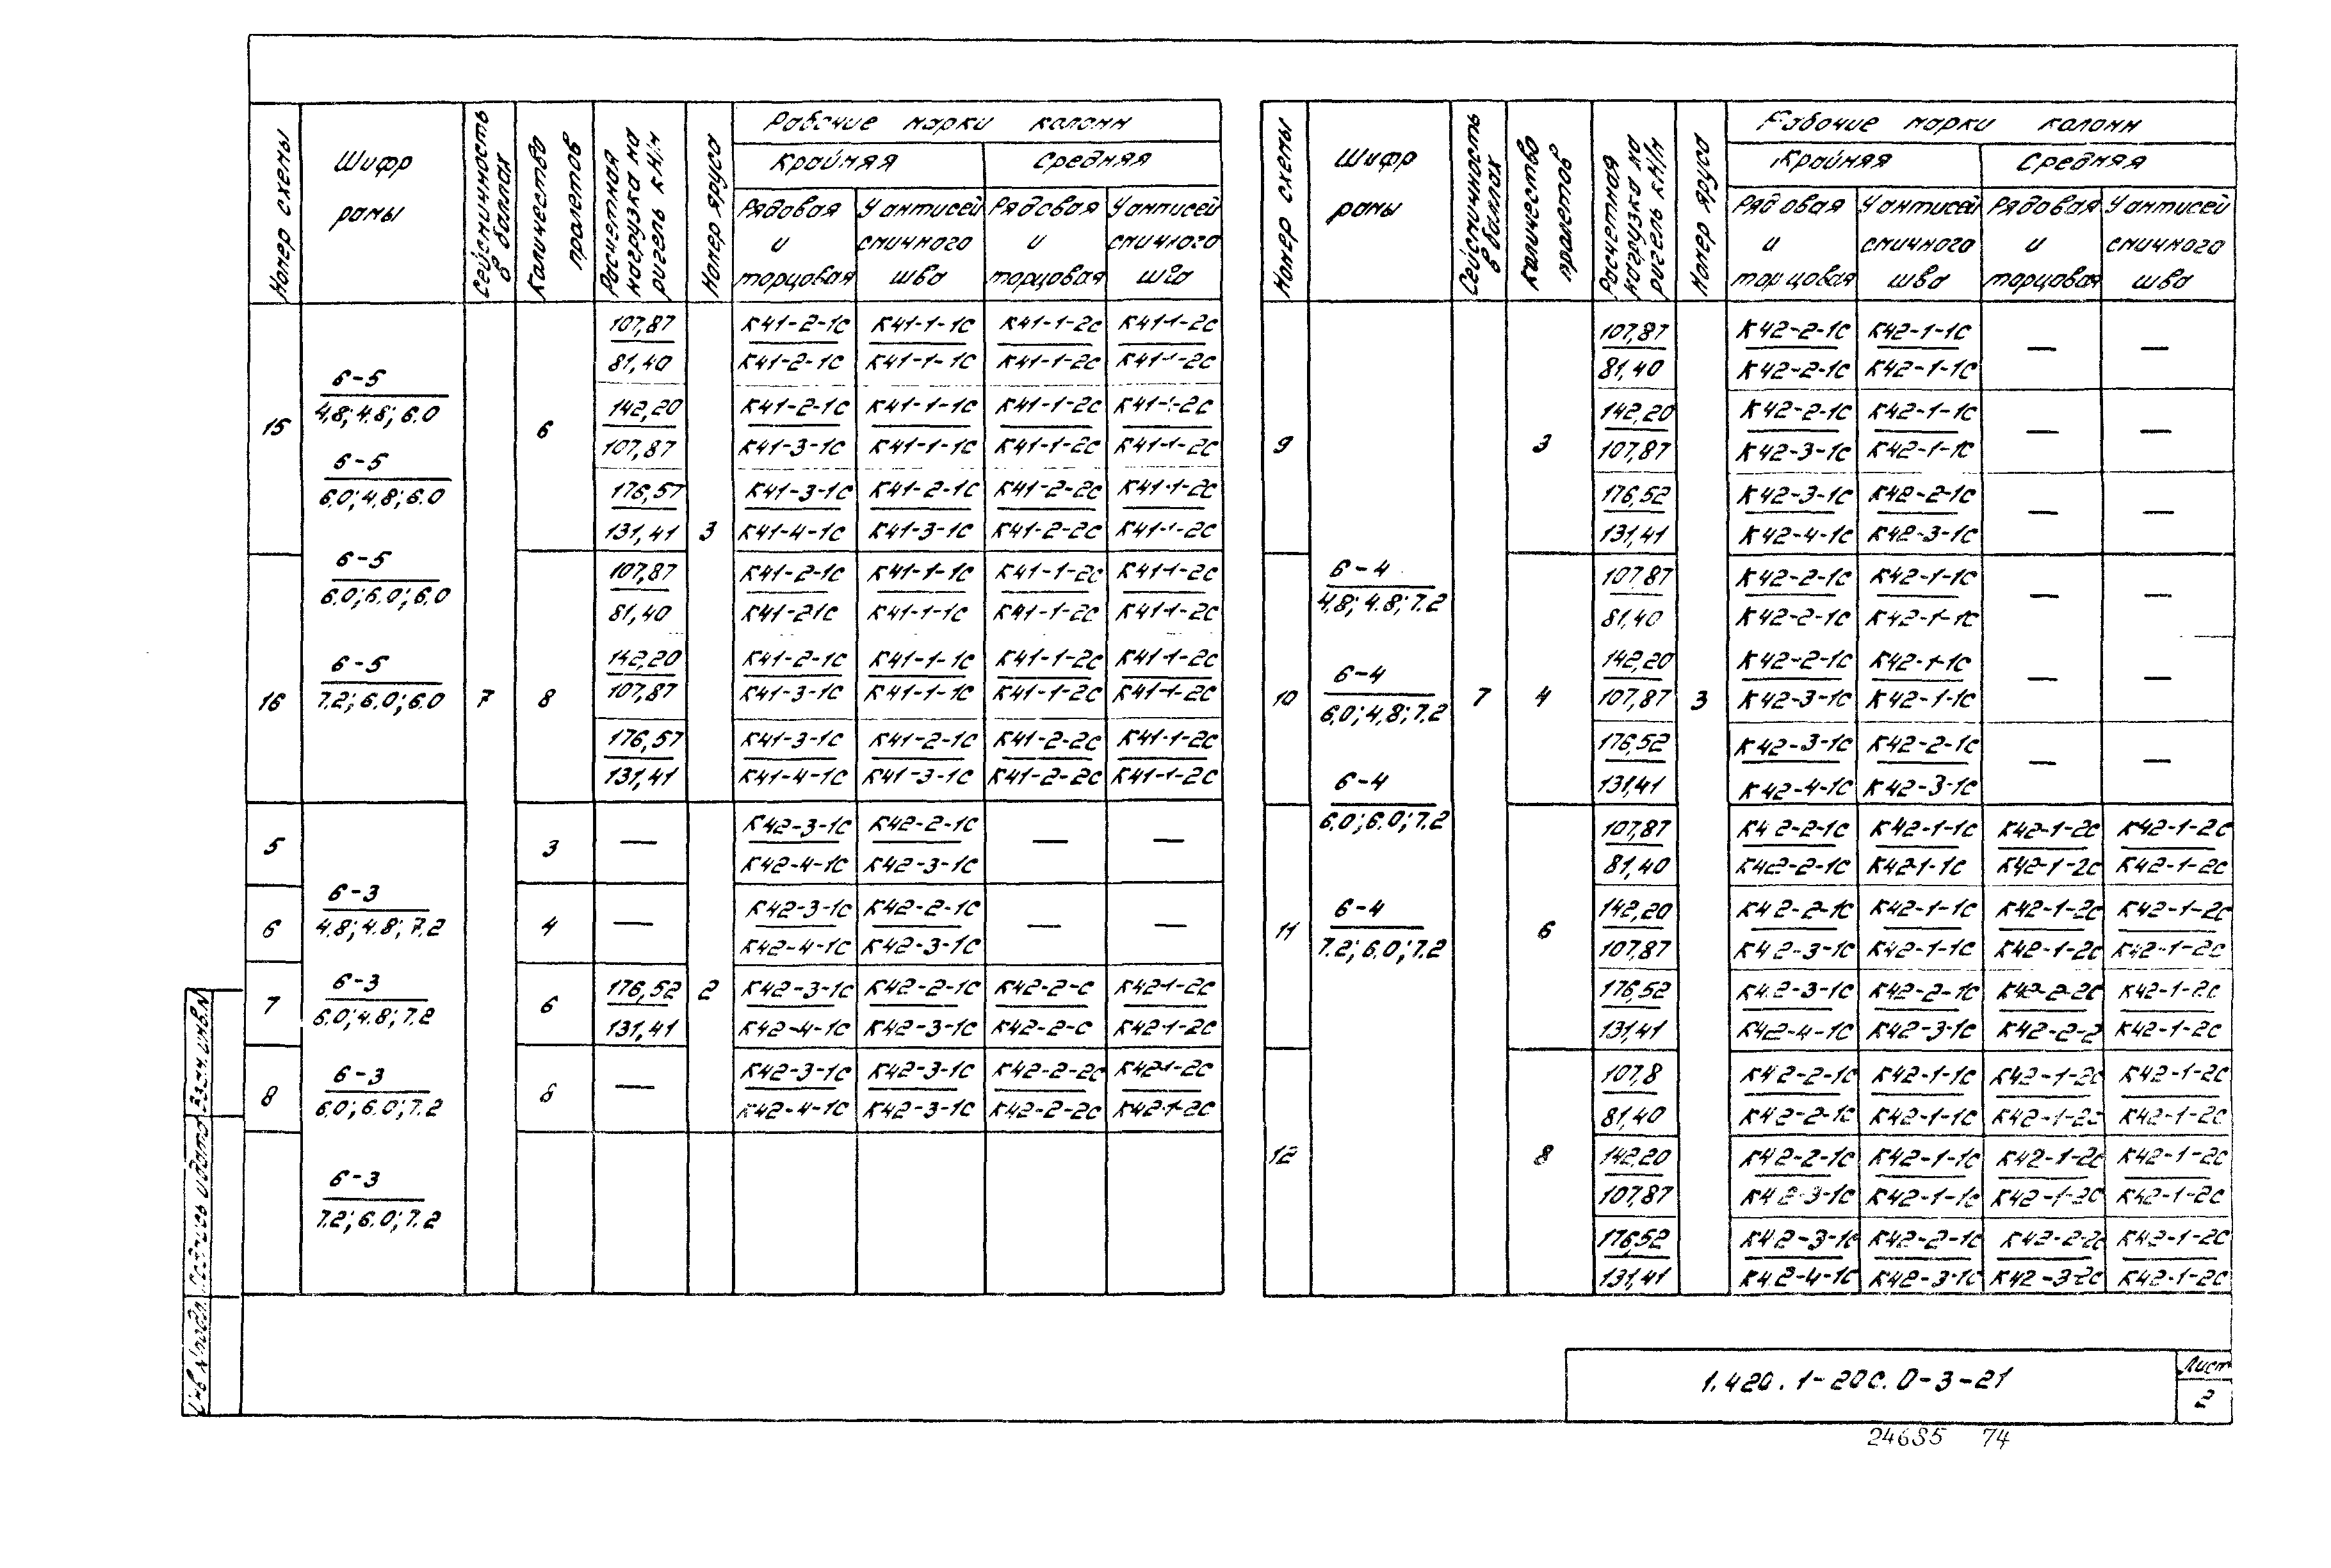 Номер схемы
Шифр рамы
Сейсмичность в баллах
Количество пролетов
Расчетная нагрузка на ригель кН/м
Номер яруса
Рабочие марки колонн
Крайняя Средняя
Рядовая и торцовая
У антисейсмичного шва
Рядовая и торцовая
У антисейсмичного шва
15
6-5
4,8; 4.8; 6.0
6-5
6.0; 4.8; 6.0
6-5
6.0; 6.0; 6.0
6-5
7.2; 6.0; 6.0
7
6
3
107,87 К41-2-1С К41-1-1С К41-1-2С К41-1-2С
81,40 К41-2-1С К41-1-1С К41-1-2С К41-1-2С
142,20 К41-2-1С К41-1-1С К41-1-2С К41-1-2С
107,87 К41-3-1С К41-1-1С К41-1-2С К41-1-2С
176,57 К41-3-1С К41-2-1С К41-2-2С К41-1-2С
131,41 К41-4-1С К41-3-1С К41-2-2С К41-1-2С
16
8
107,87 К41-2-1С К41-1-1С К41-1-2С К41-1-2С
81,40 К41-21С К41-1-1С К41-1-2С К41-1-2С
142,20 К41-2-1С К41-1-1С К41-1-2С К41-1-2С
107,87 К41-3-1С К41-1-1С К41-1-2С К41-1-2С
176,57 К41-3-1С К41-2-1С К41-2-2С К41-1-2С
131,41 К41-4-1С К41-3-1С К41-2-2С К41-1-2С
6-3
4.8; 4.8; 7.2
6-3
6.0; 4.8; 7.2
6-3
6.0; 6.0; 7.2
6-3
7.2; 6.0; 7.2
2
5 3 — К42-3-1С К42-2-1С — —
К42-4-1С К42-3-1С
6 4 — К42-3-1С К42-2-1С — —
К42-4-1С К42-3-1С
7 6 176,52 К42-3-1С К42-2-1С К42-2-С К42-1-2С
131,41 К42-4-1С К42-3-1С К42-2-С К42-1-2С
8 — К42-3-1С К42-3-1С К42-2-2С К42-1-2С
К42-4-1С К42-3-1С К42-2-2С К42-1-2С
Номер схемы
Шифр рамы
Сейсмичность в баллах
Количество пролетов
Расчетная нагрузка на ригель кН/м
Номер яруса
Рабочие марки колонн
Крайняя Средняя
Рядовая и торцовая
У антисейсмичного шва
Рядовая и торцовая
У антисейсмичного шва
6-4
4,8; 4.8; 7.2
6-4
6.0; 4,8; 7.2
6-4
6.0; 6.0; 7.2
6-4
7.2; 6.0; 7.2
7
3
9 3
107,87 К42-2-1С К42-1-1С — —
81,40 К42-2-1С К42-1-1С
142,20 К42-2-1С К42-1-1С — —
107,87 К42-3-1С К42-1-1С
176,52 К42-3-1С К42-2-1С — —
131,41 К42-4-1С К42-3-1С
10 4
107,87 К42-2-1С К42-1-1С — —
81,40 К42-2-1С К42-1-1С
142,20 К42-2-1С К42-1-1С — —
107,87 К42-3-1С К42-1-1С
176,52 К42-3-1С К42-2-1С — —
131,41 К42-4-1С К42-3-1С
11 6
107,87 К42-2-1С К42-1-1С К42-1-2С К42-1-2С
81,40 К42-2-1С К42-1-1С К42-1-2С К42-1-2С
142,20 К42-2-1С К42-1-1С К42-1-2С К42-1-2С
107,87 К42-3-1С К42-1-1С К42-1-2С К42-1-2С
176,52 К42-3-1С К42-2-1С К42-2-2С К42-1-2С
131,41 К42-4-1С К42-3-1С К42-2-2 К42-1-2С
12 8
107,8 К42-2-1С К42-1-1С К42-1-2С К42-1-2С
81,40 К42-2-1С К42-1-1С К42-1-2С К42-1-2С
142,20 К42-2-1С К42-1-1С К42-1-2С К42-1-2С
107,87 К42-3-1С К42-1-1С К42-1-2С К42-1-2С
176,52 К42-3-1С К42-2-1С К42-2-2С К42-1-2С
131,41 К42-4-1С К42-3-1С К42-3-2С К42-1-2С
Инв.№подл. Подпись и дата Взам.инв.№
1.420.1-20С.0-3-21
Лист
2
24685 74